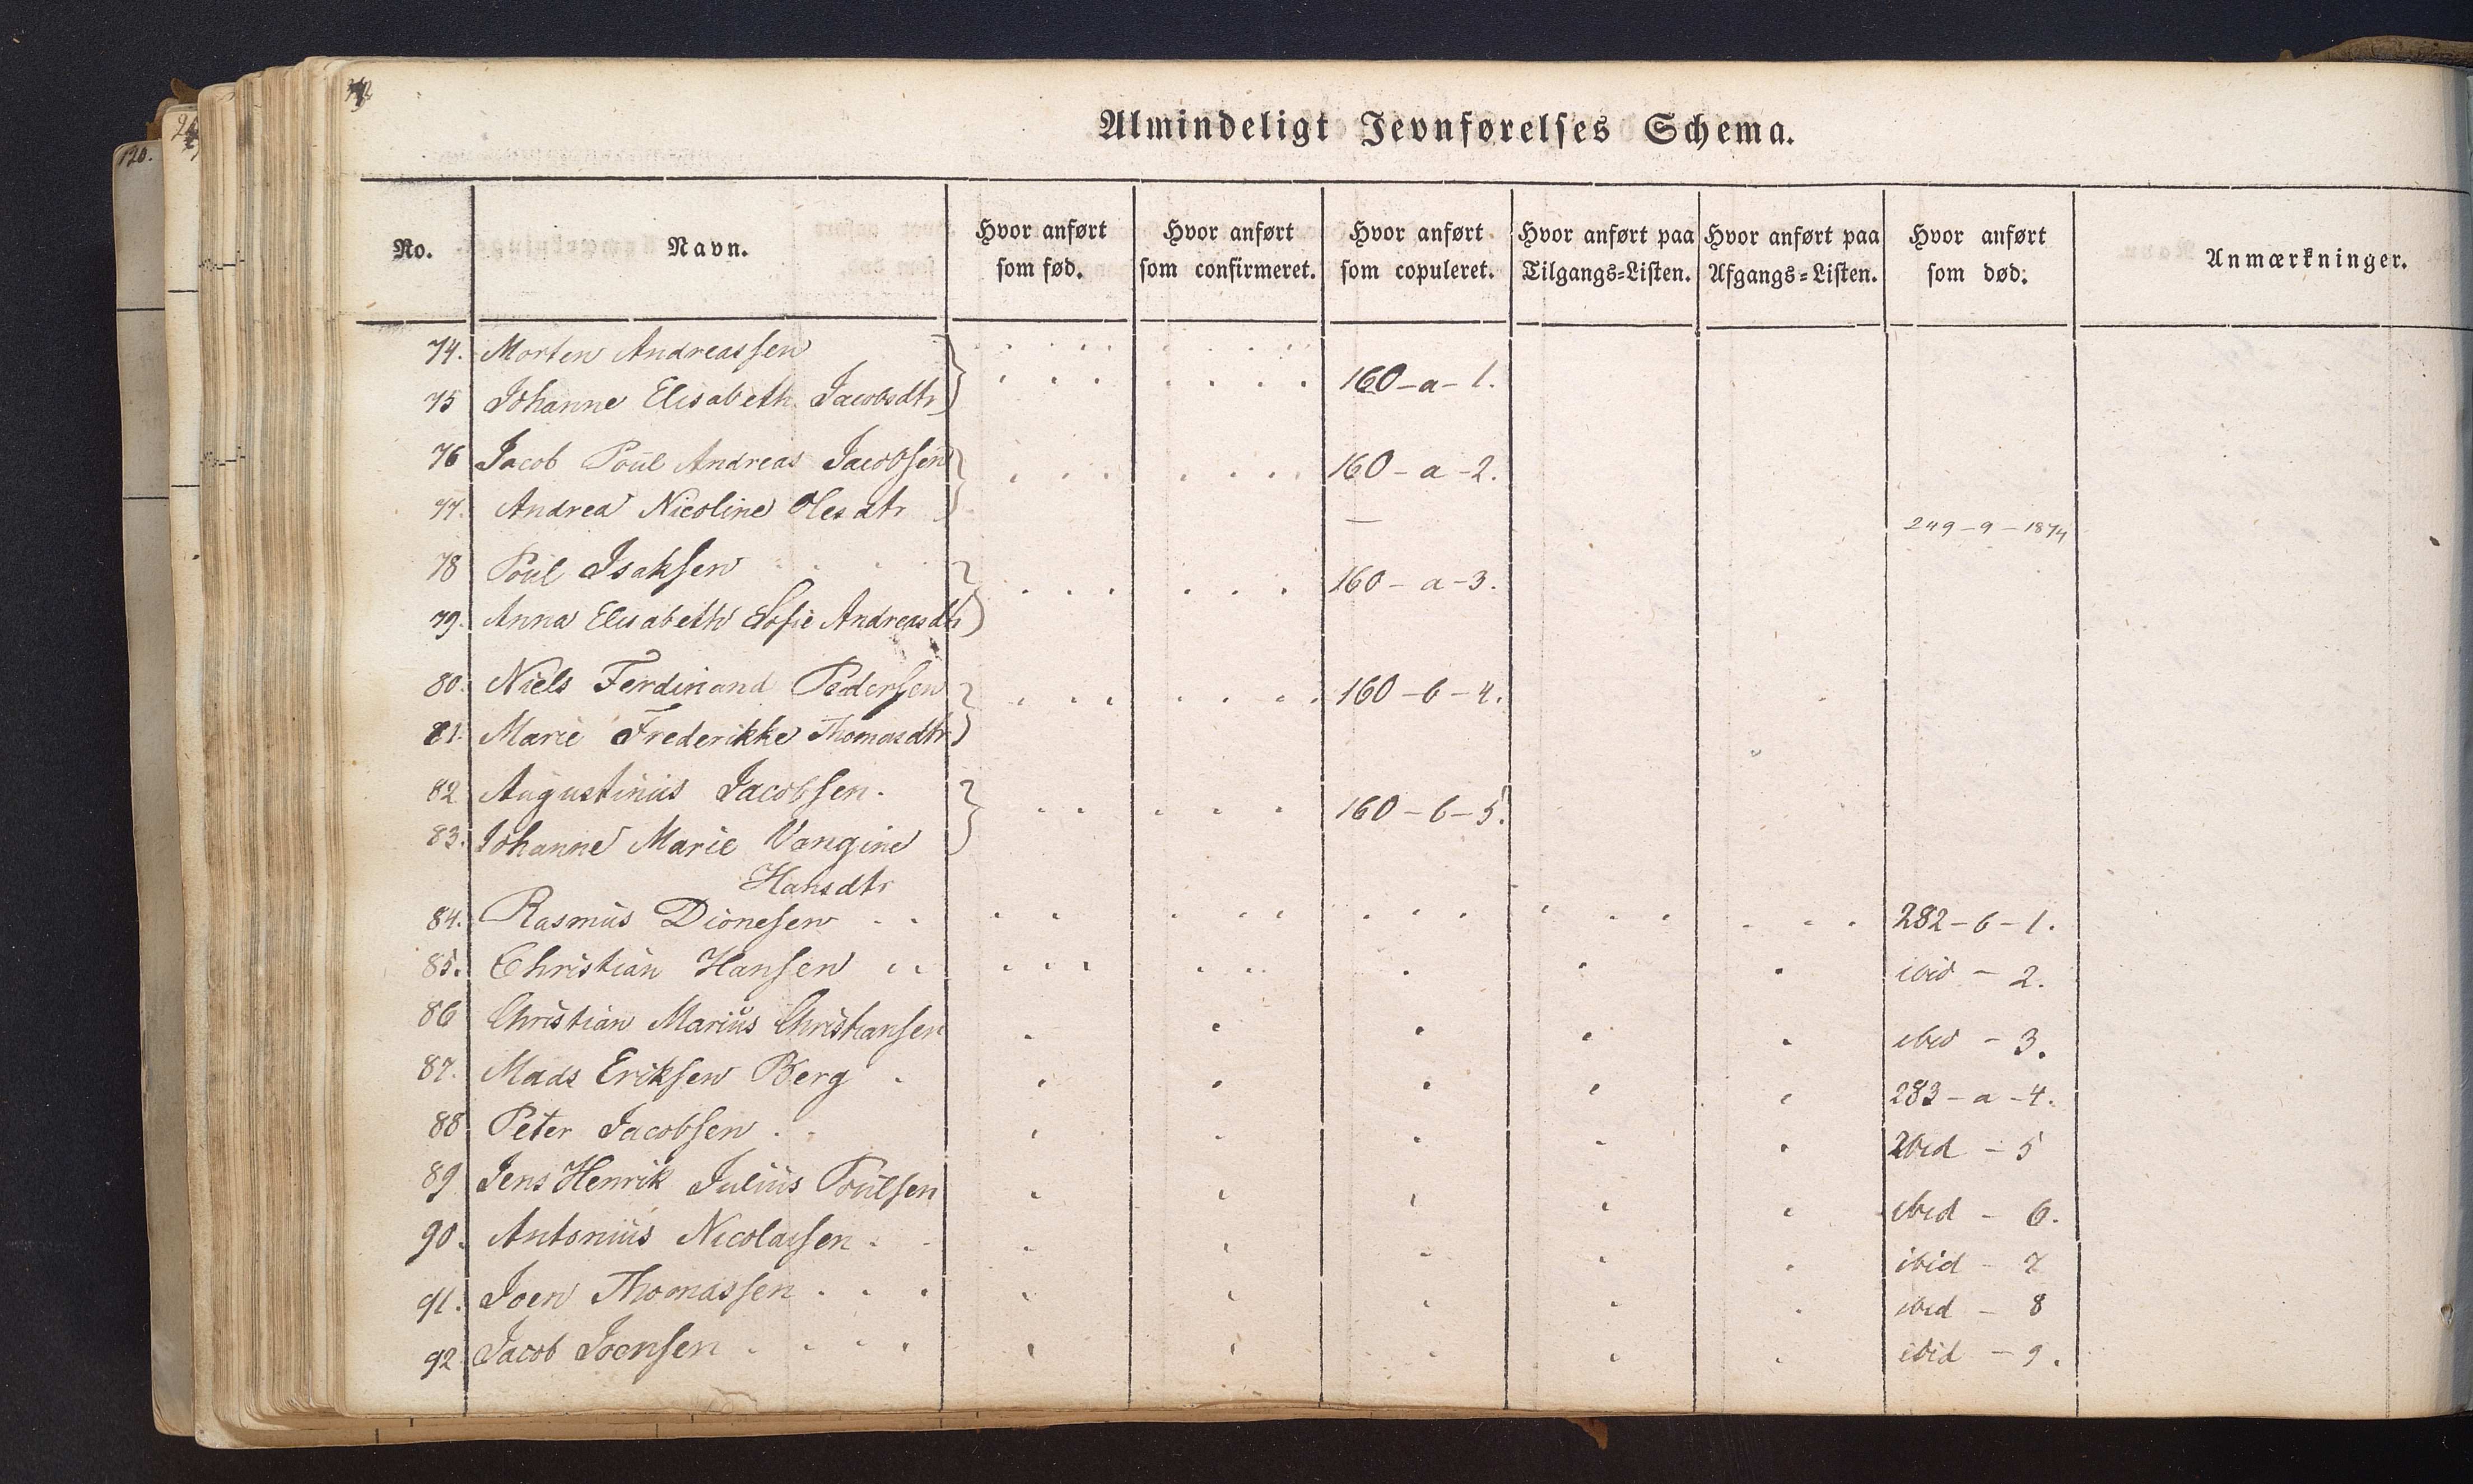 Almindeligt Jevnførelses Schema.
No. Navn. Hvor anført som fød. Hvor anført som confirmeret. Hvor anført som copuleret. Hvor anført paa Tilgangs=Listen. Hvor anført paa Afgangs=Listen. Hvor anført som død. Anmærkninger.
74. Morten Andreassen
160-a-1.
75 Johanne Elisabeth Jacobsdtr
76 Jacob Poul Andreas Jacobsen 160-a-2.
77. Andrea Nicoline Olesdtr — 249-9-1874
78 Poul Isaksen 160-a-3.
79. Anna Elisabeth Sofie Andreasdtr
80. Niels Ferdinand Pedersen 160-b-4.
81. Marie Frederikke Thomasdtr
82 Augustinus Jacobsen. 160-b-5.
83. Johanne Marie Vangine
Hansdtr
84. Rasmus Dionesen 282-b-1.
85. Christian Hansen ibid - 2.
86 Christian Marius Christiansen ibid - 3.
87. Mads Eriksen Berg 283-a-4.
88 Peter Jacobsen ibid - 5
89 Jens Henrik Julius Poulsen ibid - 6.
90. Antonius Nicolassen ibid - 7
91. Joen Thomassen ibid - 8
92 Jacob Joensen ibid - 9.
120.